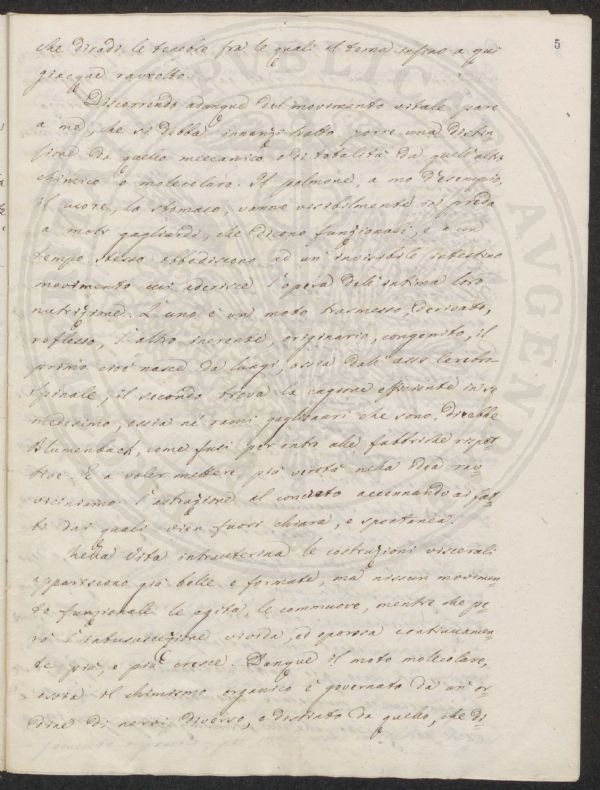 5
che diradi le tenebre fra le quali il tema infino a qui
giacque ravvolto.
Discorrendo adunque del movimento vitale pare
a me, che si debba innanzi tratto porre una distin-
zione da quello meccanico o di totalità da quell'altro
chimico o molecolare. Il polmone, a mo' d'esempio,
il cuore, lo stomaco, vanno visibilmente in preda
a moti gagliardi, che dicono funzionali, e a un
tempo stesso obbediscono ad un invisibile intestino
movimento cui aderisce l'opera dell'intima loro
nutrizione. L'uno è un moto trasmesso, derivato,
riflesso, l'altro inerente, originario, congenito, il
primo cioè nasce da lungi, ossia dall'asse cerebro-
spinale, il secondo trova la cagione efficiente in se
medesimo, ossia ne' rami gagliari che sono direbbe
Blumenbach, come fusi per entro alle fabbriche rispet-
tive. E a voler mettere più verità nella idea rav-
viciniamo l'astrazione al concreto accennando ai fat-
ti dai quali vien fuori chiara, e spontanea.
Nella vita intrauterina le costruzioni viscerali
appariscono già belle e formate, ma nissun movimen-
to funzionale le agita, le commuove, mentre che pe-
rò l'intususcezione vivida, ed operosa continuamen-
te più, e più cresce. Dunque il moto molecolare,
ossia il chimismo organico è governato da un or-
dine di nervi diverso, e distinto da quello, che di-
PVBLICA
AVGEND